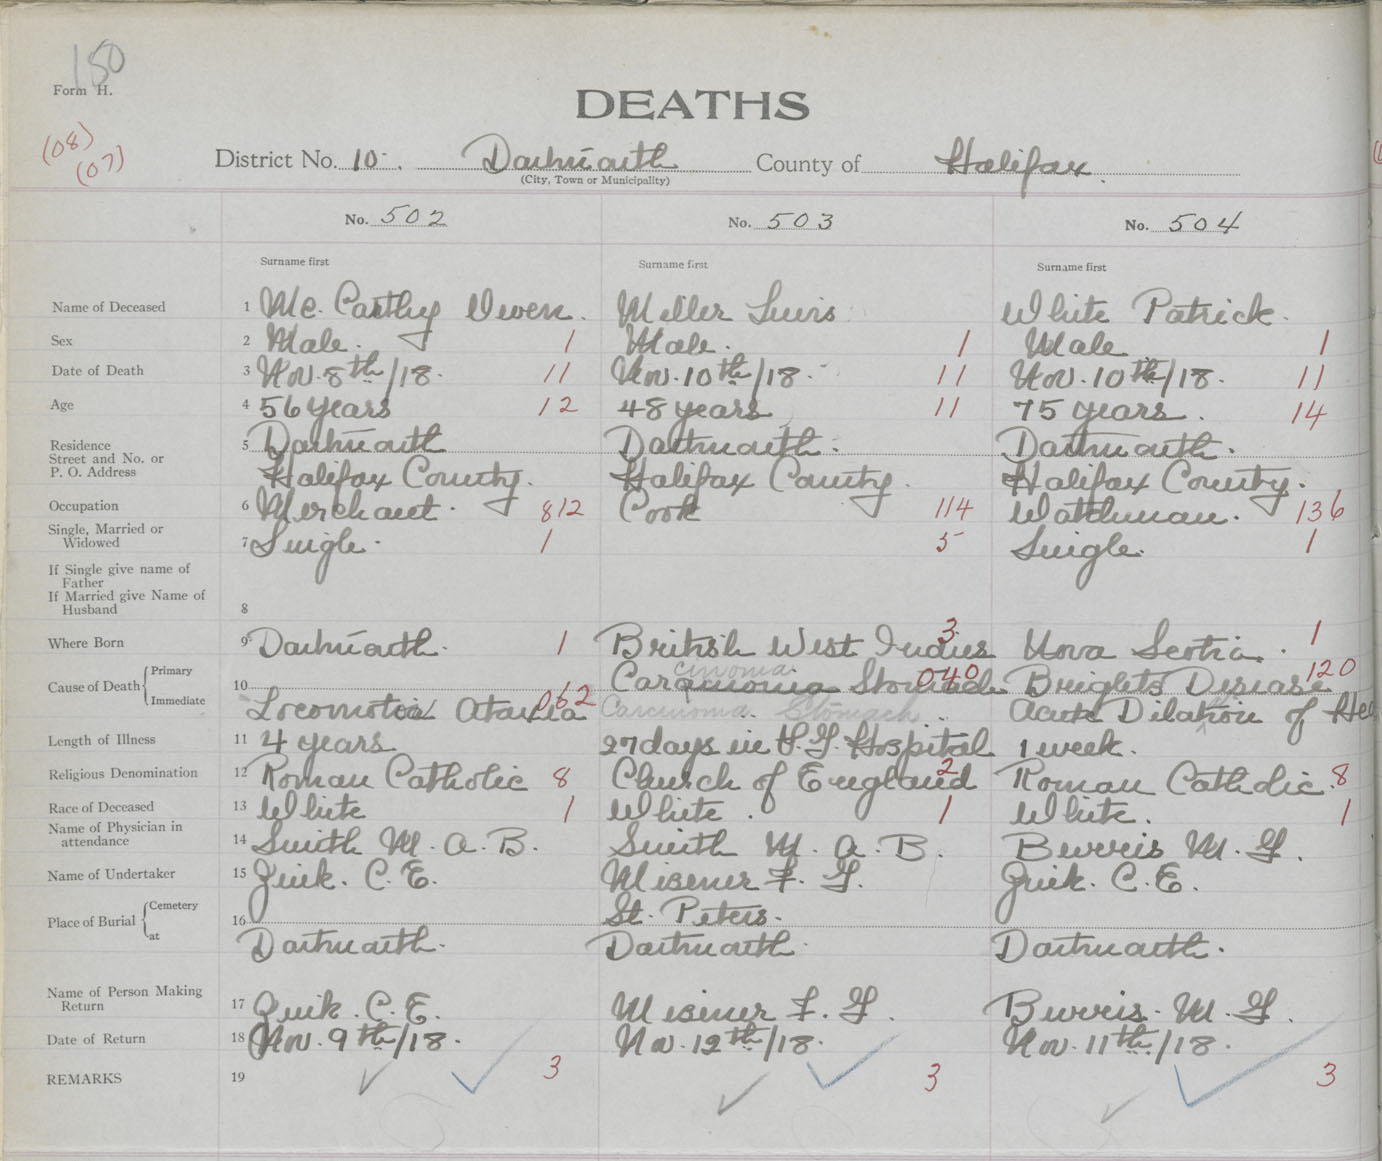 150
Form H.
DEATHS
(08)
(07)
District No. 10. Dartmouth County of Halifax.
(City, Town or Municipality)
No. 502 No. 503 No. 504
Surname first Surname first Surname first
Name of Deceased 1 Mc. Carthy Owen. Miller Luvis White Patrick.
Sex 2 Male. 1 Male. 1 Male 1
Date of Death 3 Nov. 8th/18. 11 Nov. 10th/18. 11 Nov. 10th/18. 11
Age 4 56 years 12 48 years 11 75 years. 14
Residence 5 Dartmouth Dartmouth. Dartmouth.
Street and No. or
P. O. Address Halifax County. Halifax County. Halifax County.
Occupation 6 Merchant. 812 Cook 114 Watchman. 136
Single, Married or
Widowed 7 Single. 1 5 Single. 1
If Single give name of
Father
If Married give Name of
Husband 8
Where Born 9 Dartmouth. 1 British West Indies 3 Nova Scotia. 1
Cause of Death Primary 10 Carcinoma cinoma. Stomach 040 Brights Disease 120
Immediate Locomotia Ataxia 062 Carcinoma. Stomach. Acute Dilation of Hea
Length of Illness 11 4 years 27 days in V. G. Hospital 1 week.
Religious Denomination 12 Roman Catholic 8 Church of England 2 Roman Catholic. 8
Race of Deceased 13 White 1 White. 1 White. 1
Name of Physician in
attendance 14 Smith M. A. B. Smith M. A. B. Burris M. G.
Name of Undertaker 15 Zink. C. E. Misener F. G. Zink. C. E.
Place of Burial Cemetery 16 St. Peters.
at Dartmouth. Dartmouth. Dartmouth.
Name of Person Making
Return 17 Zink. C. E. Misener F. G. Burris. M. G.
Date of Return 18 Nov. 9th/18. Nov. 12th/18. Nov. 11th/18.
REMARKS 19 3 3 3